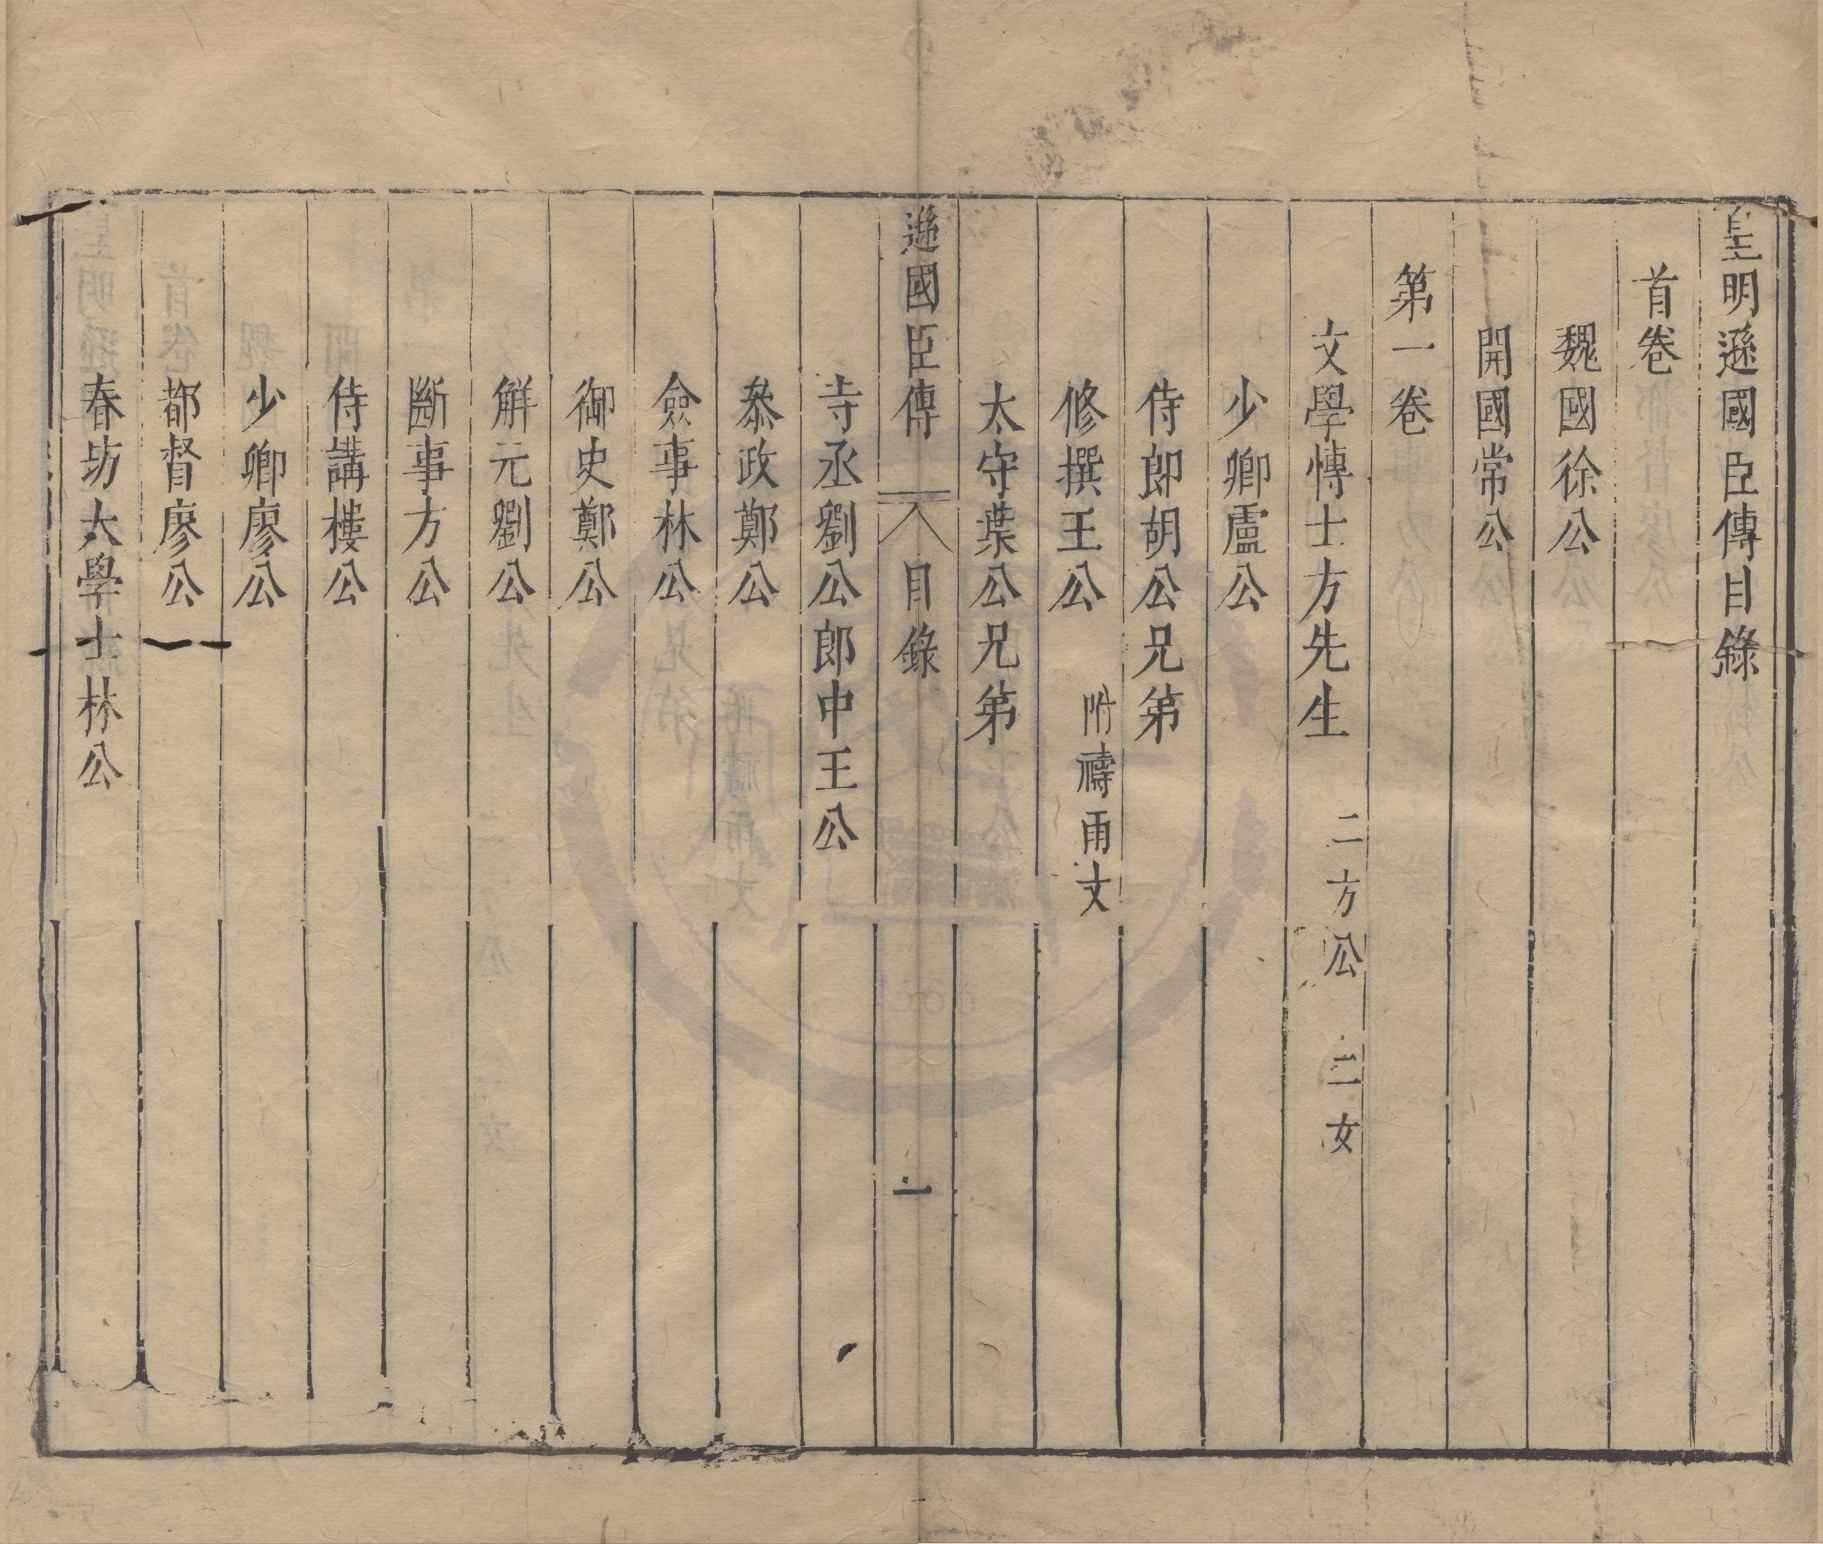 皇明遜國臣傳目錄
首卷
魏國徐公
開國常公
第一卷
文學博士方先生 二方公 二女
少卿盧公
侍郎胡公兄第
修撰王公 附禱雨文
太守葉公兄第
遜國臣傳 目錄 一
寺丞劉公郎中王公
叅政鄭公
僉事林公
御史鄭公
解元劉公
斷事方公
侍講樓公
少卿廖公
都督廖公
春坊大學士林公